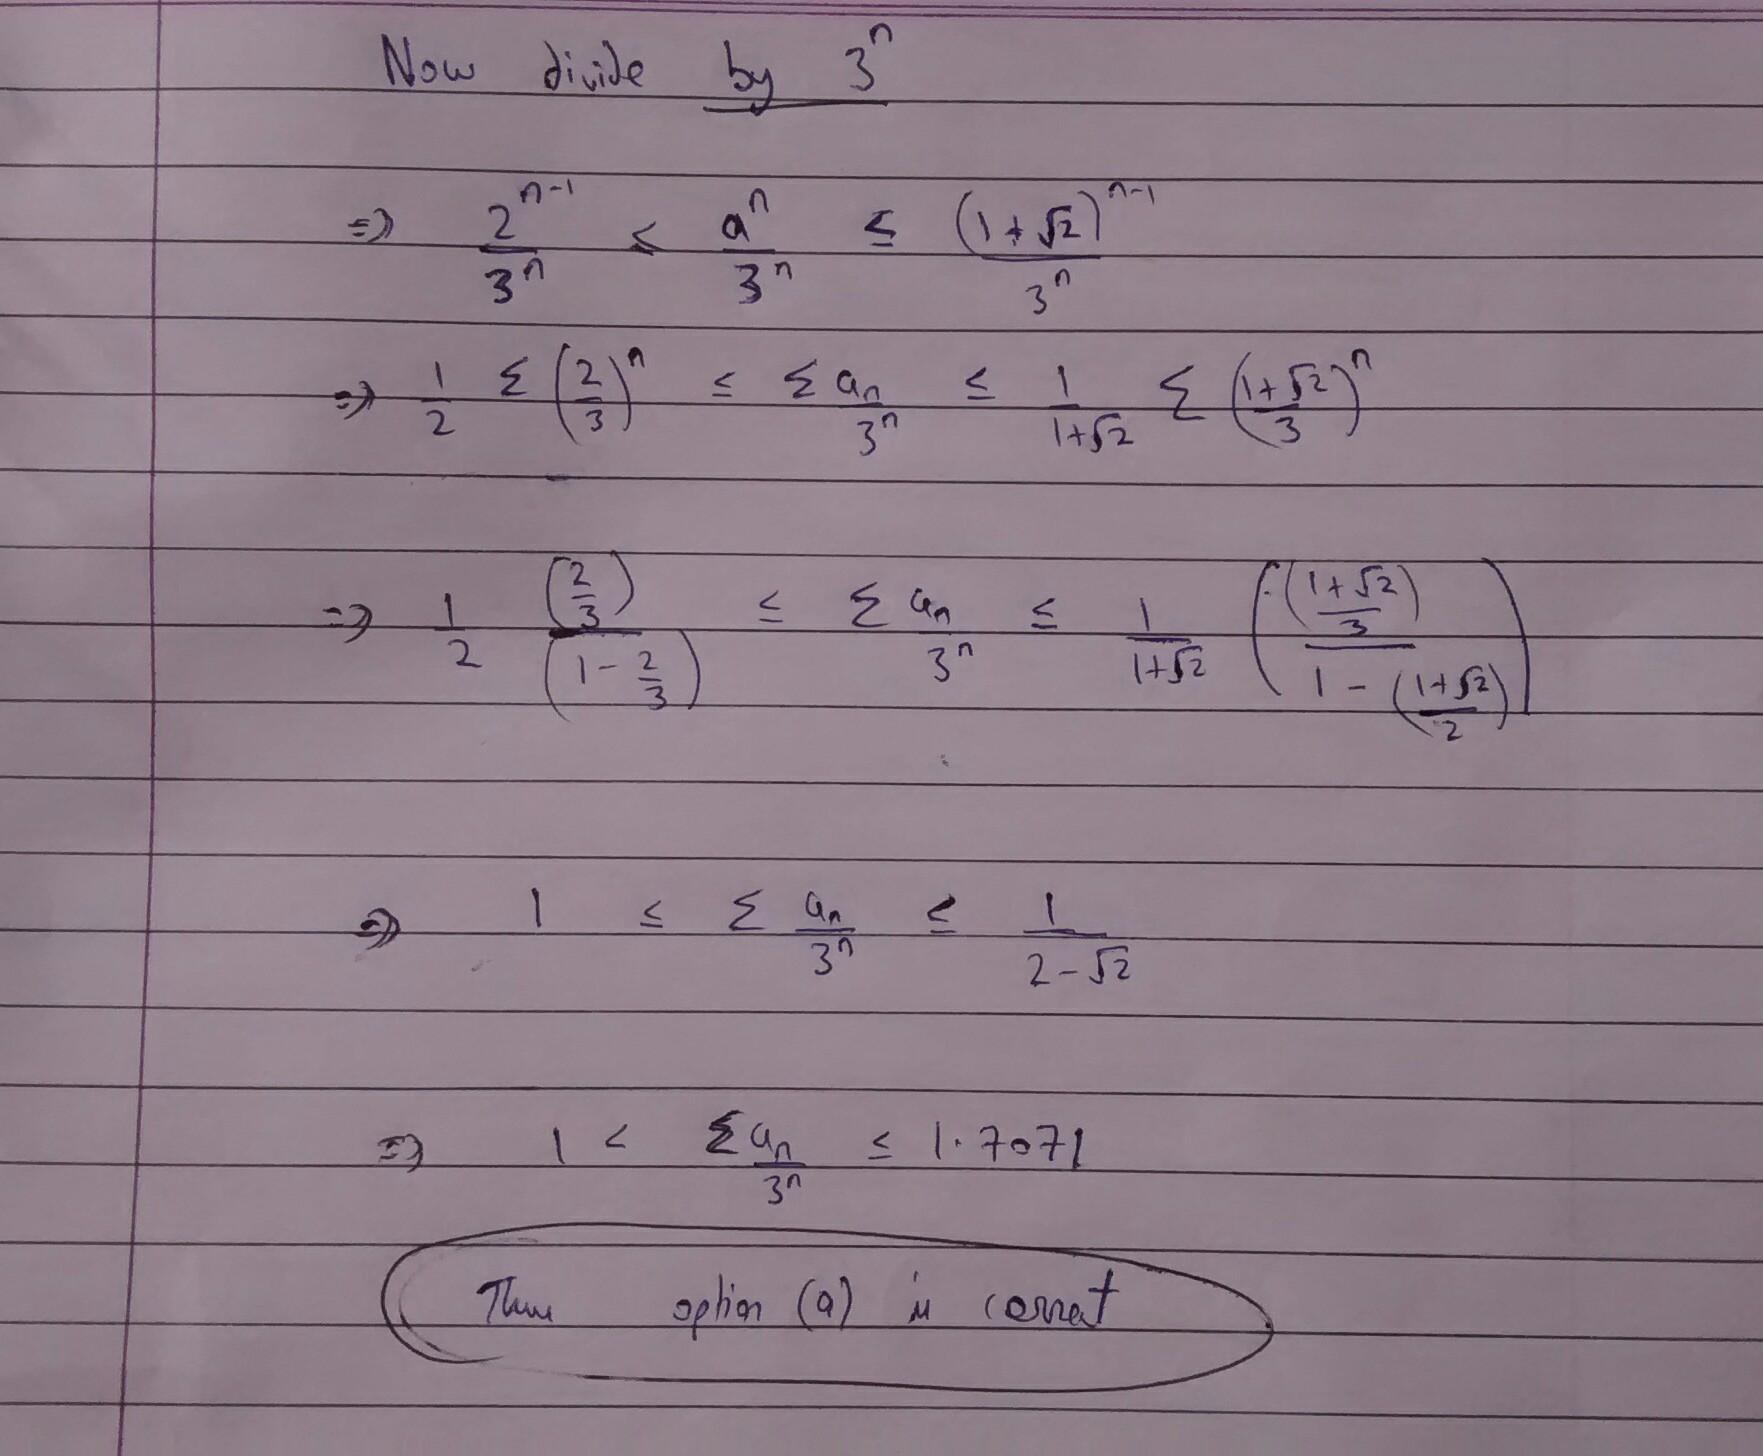 Now divide by 3^n
⇒ 2^{n-1}/3^n ≤ a^n/3^n ≤ (1+√2)^{n-1}/3^n
⇒ 1/2 Σ (2/3)^n ≤ Σ a_n/3^n ≤ 1/(1+√2) Σ ((1+√2)/3)^n
⇒ 1/2 (2/3)/(1-2/3) ≤ Σ a_n/3^n ≤ 1/(1+√2) (((1+√2)/3)/(1-((1+√2)/2)))
⇒ 1 ≤ Σ a_n/3^n ≤ 1/(2-√2)
⇒ 1 < Σ a_n/3^n ≤ 1.7071
Thus option (a) is correct